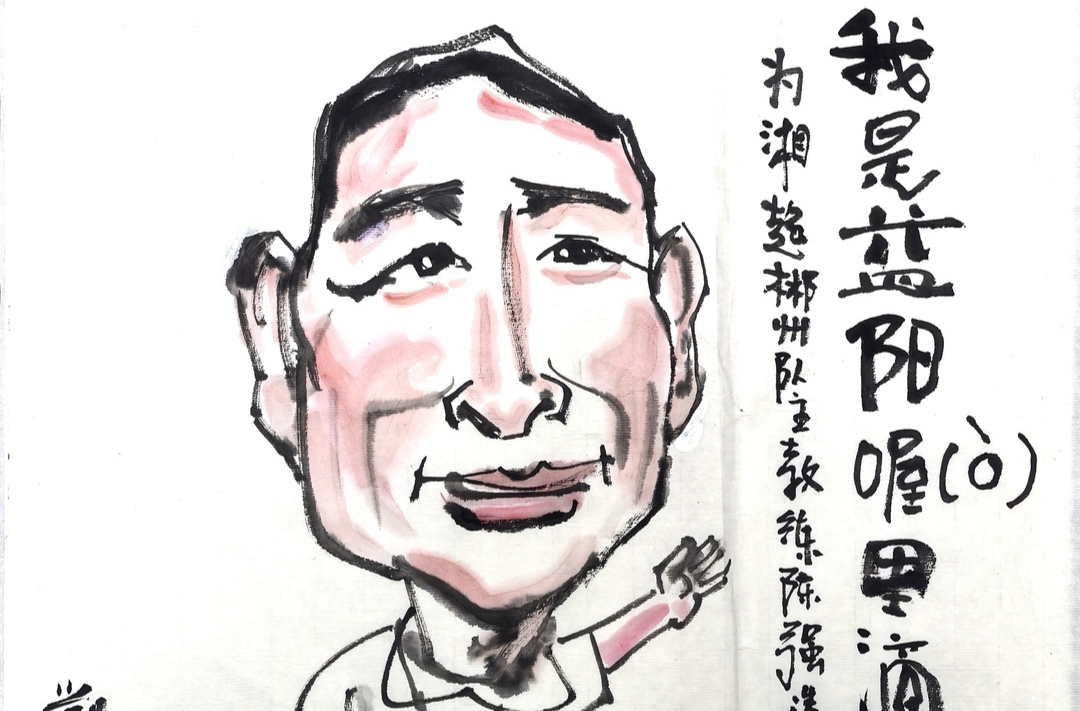 我是益阳喔(ò)里滴
为湘超郴州队主教练陈强造